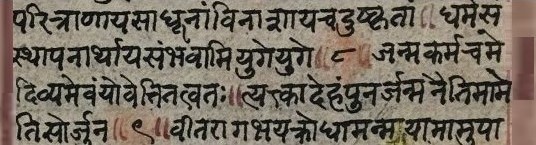 परित्राणायसाधूनांविनाशायचदुष्कृतां॥धर्मसं
स्थापनार्थायसंभवामियुगेयुगे॥८॥जन्मकर्मचमे
दिव्यमेवंयोवेत्तितत्वतः॥त्यक्त्कादेहंपुनर्जन्मनैतिमामे
तिसोर्जुन॥९॥वीतरागभयक्रोधामन्मयामामुपा